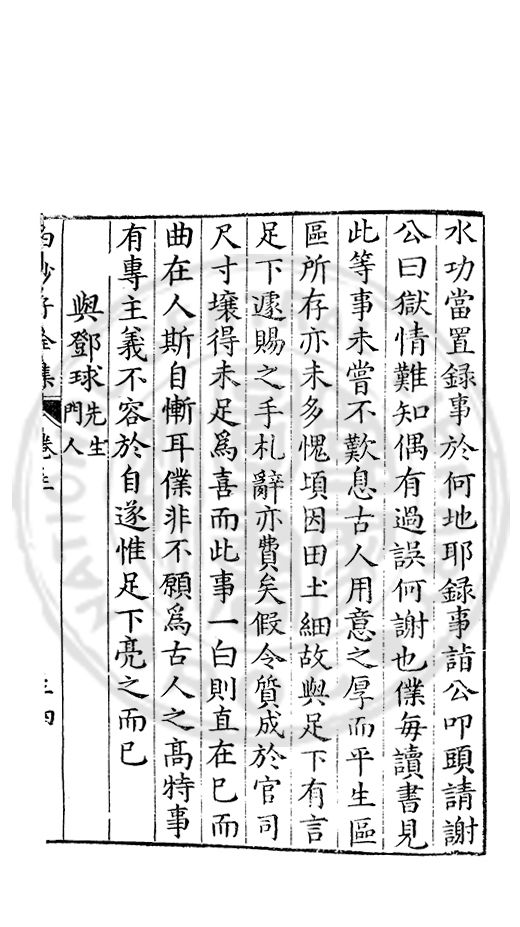 水功當置録事於何地耶録事詣公叩頭請謝
公曰獄情難知偶有過誤何謝也僕每讀書見
此等事未嘗不歎息古人用意之厚而平生區
區所存亦未多愧頃因田土細故與足下有言
足下遽賜之手札辭亦費矣假令質成於官司
尺寸壤得未足爲喜而此事一白則直在已而
曲在人斯自慚耳僕非不願爲古人之高特事
有專主義不容於自遂惟足下亮之而已
與鄧球先生門人
白沙子全集 卷之三